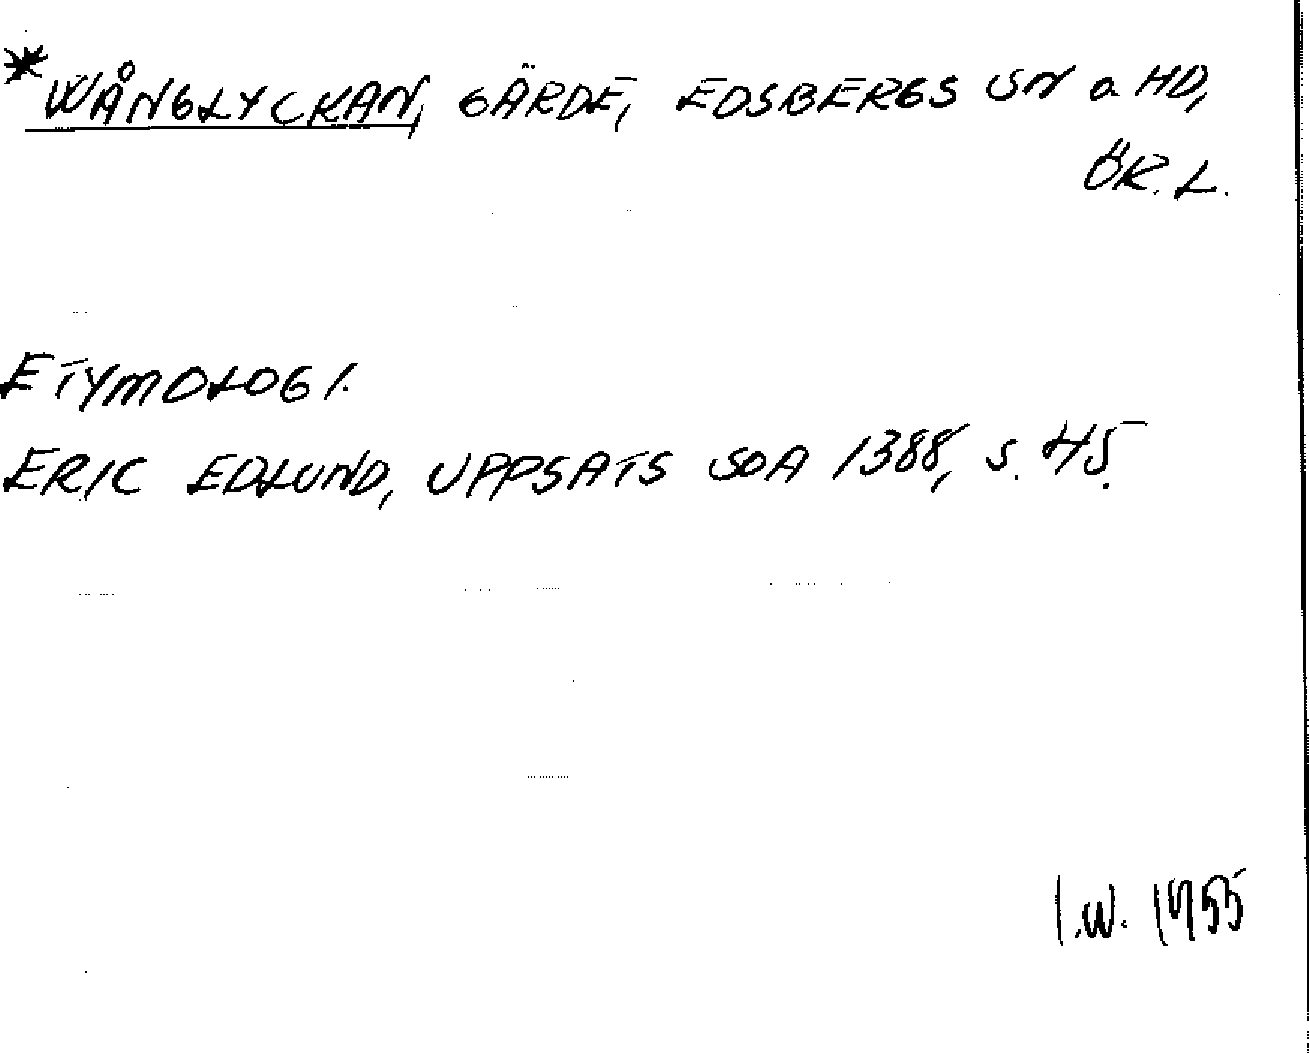 *WÅNGLYCKAN, GÄRDE, EDSBERGS SN o HD,
ÖR.L.
ETYMOLOGI.
ERIC EDLUND, UPPSATS SOA 1388, S. 45.
I.W. 1955